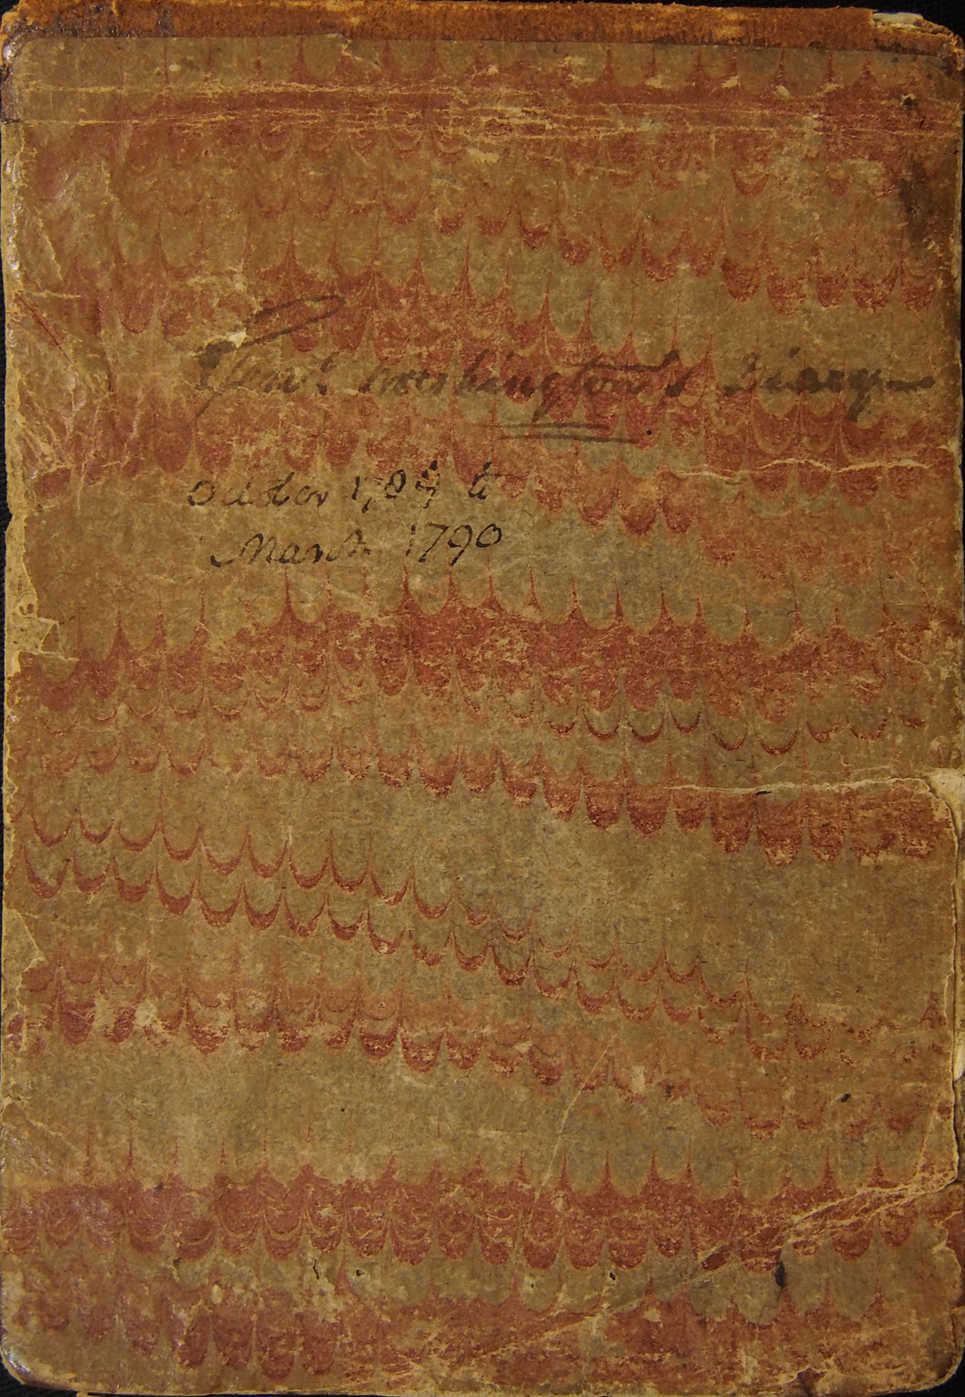 Genl. Washington's Diary
October 1789 to
March 1790